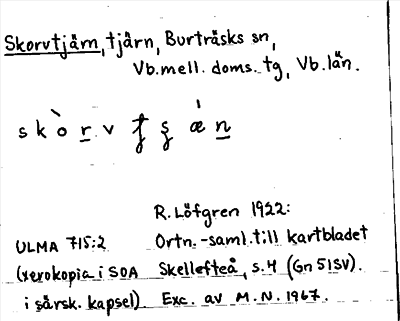 Skorvtjärn, tjärn, Burträsks sn,
Vb.mell. doms. tg, Vb. län.
R. Löfgren 1922:
ULMA 715:2 Ortn.-saml. till kartbladet
(xerokopia i SOA Skellefteå, s. 4 (Gn 51SV).
i särsk. kapsel). Exc. av M.N. 1967.